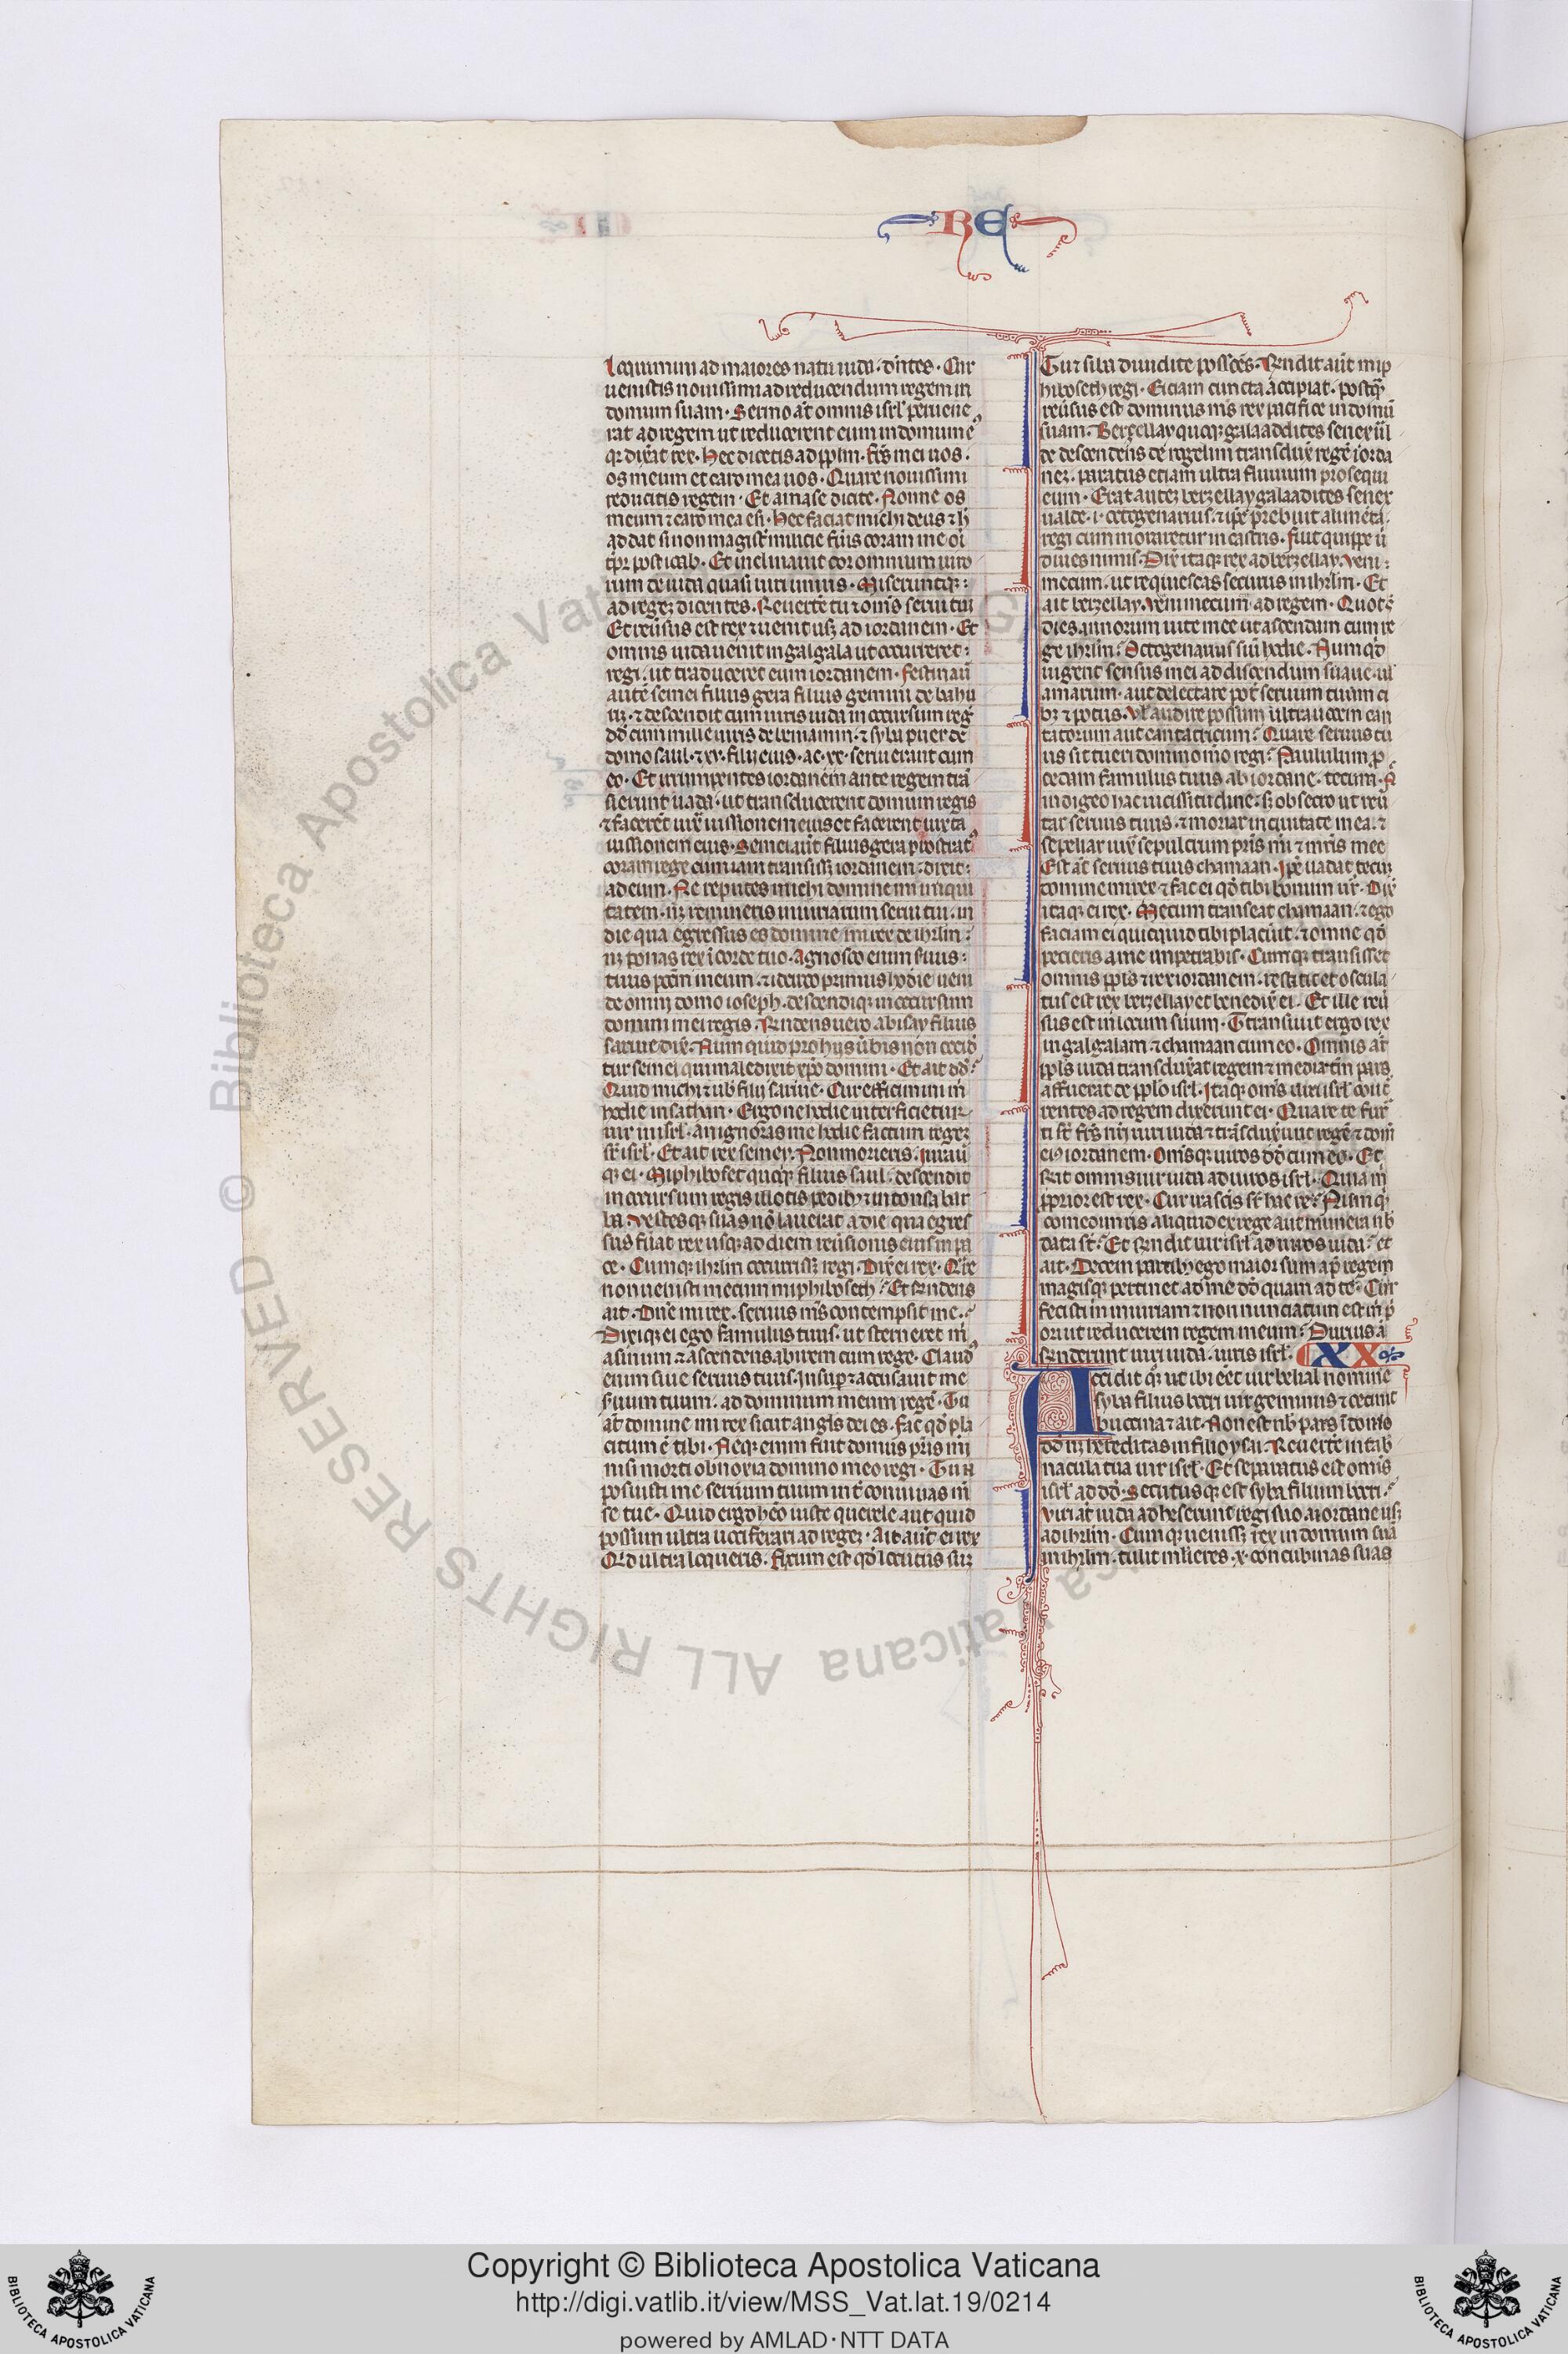 RE
loquimini ad maiores natu iuda · dn̄tes · Cur
uenistis nouissimi ad reducendum regem in
domum suam · Sermo at̄ omnis isrl̄ peruene
rat ad regem ut reducerent eum in domum eꝰ
qꝛ dix̄at rex · Hec dicetis ad pplm · frēs mei uos ·
os meum et caro mea uos · Quare nouissimi
reducitis regem · Et amase dicite · Nonne os
meum ⁊ caro mea est · Hec faciat michi deus ⁊ h̄
addat si non magist̄ militie fueris coram me oī
tp̄r post ioab · Et inclinauit cor omnium uiro
rum de iuda quasi uiri unius · Miseruntqꝫ
ad regeꝫ dicentes · Reuertē tu ⁊ om̄s serui tui
Et reūsus est rex ⁊ uenit usqꝫ ad iordanem · Et
omnis iuda uenit in galgala ut occurreret
regi · ut traduceret eum iordanem · festinauī
autē semei filius gera filius gemini de bahu
rī · ⁊ descendit cum uiris iuda in occursum reḡ
dd̄ cum mille uiris de beniamin · ⁊ syba puer de
domo saul · ⁊ xv · filij eius · ac · xx · serui erant cum
eo · Et irrumpentes iordanem ante regem trā
sierunt uada · ut transducerent domum regis
⁊ facerēt iux̄ iussionem eius et facerent iuxta
iussionem eius · Semei aūt filius gera prostratꝰ
coram rege cum iam transissꝫ iordanem · dixit
ad eum · Ne reputes michi domine mi iniqui
tatem · nꝫ memineris iniuriarum serui tui · in
die qua egressus es domine mi rex de ihrlm
nꝫ ponas rex ī corde tuo · Agnosco enim seruus
tuus pccm meum · ⁊ idcirco primus hodie ueni
de omni domo ioseph · descendiqꝫ in occursum
domini mei regis · Rn̄dens uero abisay filius
saruie dix̄ · Num quid pro hijs ūbis non occid
tur semei qui maledixit xp̄o domini · Et ait dd̄
Quid michi ⁊ uob filij saruie · Cur efficimini m̄
hodie in sathan · Ergo ne hodie interficietur
uir in isrl̄ · an ignoras me hodie factum regeꝫ
sr̄ isrl̄ · Et ait rex semey · Non morieris · Iurauī
qꝫ ei · Miphiboset quoqꝫ filius saul · descendit
in occursum regis illotis pedibꝫ ⁊ intonsa bar
ba · Vestesqꝫ suas nō lauerat a die qua egres
sus fūat rex usqꝫ ad diem reūsionis eius in pa
ce · Cumqꝫ ihrlm occurrissꝫ regi · Dix̄ ei rex · Qr̄e
non uenisti mecum miphiboseth · Et rn̄dens
ait · Dn̄e mi rex · seruus m̄s contempsit me ·
Dixiqꝫ ei ego famulus tuus · ut sterneret m̄
asinum ⁊ ascendens abirem cum rege · Claudꝰ
enim sum seruus tuus · Insuꝑ ⁊ accusauit me
seruum tuum · ad dominum meum regē · Tu
at̄ domine mi rex sicut angl̄s dei es · Fac qd̄ pla
citum ē tibi · Neqꝫ enim fuit domus pr̄is mi
nisi morti obnoxia domino meo regi · Tu ꝟ
posuisti me seruum tuum int̄ conuiuas m̄
se tue · Quid ergo hēo iuste querele aut quid
possum ultra uociferari ad regeꝫ · Ait aūt ei rex
Qid ultra loqueris · Fixum est qd̄ locutus suꝫ
Tu ⁊ siba diuidite poss̄es · Rn̄dit aūt mip
hiboseth regi · Etiam cuncta accipiat · postq̄
reūsus est dominus m̄s rex pacifice in domū
suam · Berzellay quoqꝫ galaaddites senex uīl
de descendens de rogelim transdux̄ regē iorda
neꝫ · paratus etiam ultra fluuium prosequi
eum · Erat auteꝫ berzellay galaadites senex
ualde · i · octogenarius · ⁊ ipē prebuit alimēta
regi cum moraretur in castris · fuit quippe ū
diues nimis · Dix̄ itaqꝫ rex ad berzellay · Veni
mecum · ut requiescas securus in ihrlm · Et
ait berzellay · Veni mecum ad regem · Quot s̄
dies annorum uite mee ut ascendam cum re
ge ihrlm · Octogenarius sum hodie · Numqd̄
uigent sensus mei ad discendum suaue · ul̄
amarum · aut delectare pot̄ seruum tuum ci
bꝫ ⁊ potus · Vl̄ audire possum ultra uocem can
tatorum aut cantatricum · Quare seruus tu
us sit tueri domino mo regi · Paululum ꝓ
cedam famulus tuus ab iordane · tecum · N̄
indigeo hac uicissitudine · sꝫ obsecro ut reū
tar seruus tuus · ⁊ moriar in ciuitate mea · ⁊
sepeliar iux̄ sepulcrum pr̄is mi ⁊ mr̄is mee
Est at̄ seruus tuus chamaan · Ipē uadat tecuꝫ
domine mi rex · ⁊ fac ei qd̄ tibi bonum ur̄ · Dix̄
itaqꝫ ei rex · Mecum transeat chamaan · ⁊ ego
faciam ei quicquid tibi placūit · ⁊ omne qd̄
petieris a me impetrabis · Cumqꝫ transisset
omnis ppl̄s ⁊ rex iordanem · restitit et oscula
tus est rex berzellay et benedix̄ ei · Et ille reū
sus est in locum suum · Transiuit ergo rex
in galgalam · ⁊ chamaan cum eo · Omnis at̄
ppl̄s iuda transdux̄at regem ⁊ media tm̄ pars
affuerat de pplo isrl̄ · Itaqꝫ om̄s uiri isrl̄ ɔcur
rentes ad regem dixerunt ei · Quare te fur
ti sr̄ frēs nr̄i uiri iuda ⁊ trāsdux̄unt regē ⁊ dom̄
eiꝰ iordanem · Om̄sqꝫ uiros dd̄ cum eo · Et
rn̄dit omnis uir iuda ad uiros isrl̄ · Quia m̄
ꝓprior est rex · Cur irascis sr̄ hac re · Num qꝫ
comedimus aliquid ex rege aut munera nb̄
data st̄ · Et rn̄dit uir isrl̄ ad uiros iuda · et
ait · Decem partibꝫ ego maior sum ap̄ regem
magisqꝫ pertinet ad me dd̄ quam ad te · Cur
fecisti m̄ iniuriam ⁊ non nunciatum est m̄ p̄
ori ut reducerem regem meum · Durius at̄
rn̄derunt uiri iuda · uiris isrl̄ · XX
Accidit qꝫ ut ibi eēt uir belial nomine
syba filius bocri uir geminus ⁊ cecinit
buccina ⁊ ait · Non est nb̄ pars ī domo
dd̄ nꝫ hereditas in filio ysai · Reuertē in tab̄
nacula tua uir isrl̄ · Et separatus est om̄is
isrl̄ ad dd̄ · Secutusqꝫ est syba filium bocri ·
Viri at̄ iuda adheserunt regi suo a iordane usqꝫ
ad ihrlm · Cumqꝫ uenissꝫ rex in domum suā
in ihrlm · tulit ml̄ieres · x · concubinas suas
Copyright © Biblioteca Apostolica Vaticana
http://digi.vatlib.it/view/MSS_Vat.lat.19/0214
powered by AMLAD·NTT DATA
BIBLIOTECA APOSTOLICA VATICANA
BIBLIOTECA APOSTOLICA VATICANA